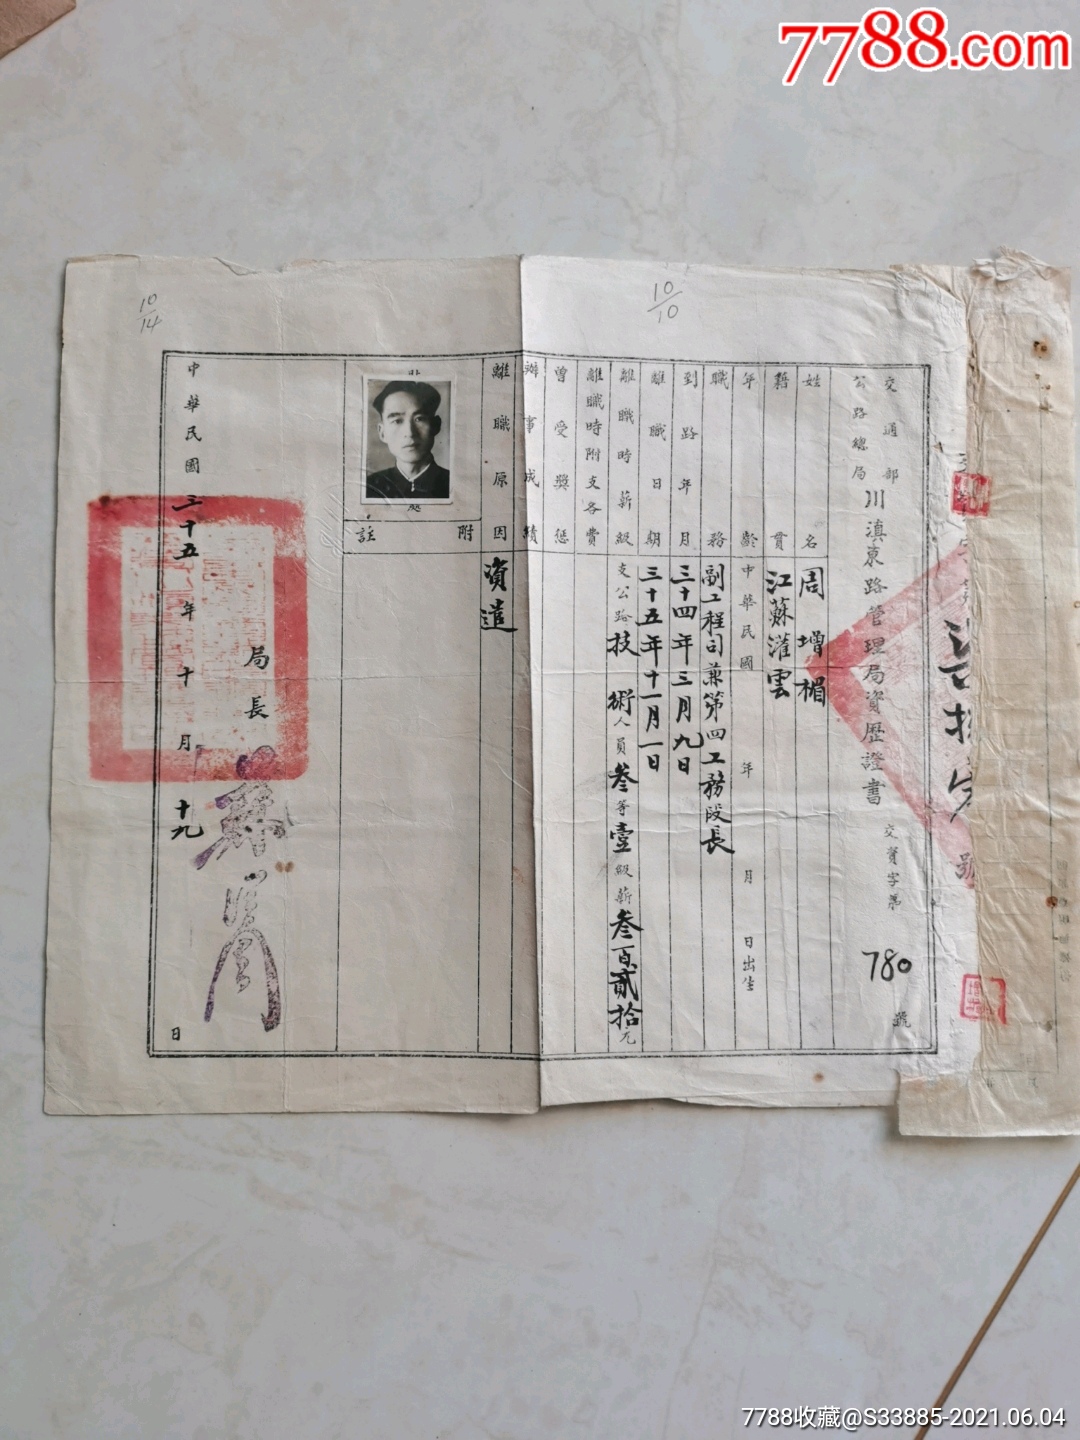 7788.com
10/10
10/14
交通部
公路總局
川滇東路管理局資歷證書
交資字第780號
姓名 周增楣
籍貫 江蘇灌雲
年齡 中華民國 年 月 日出生
職務 副工程司兼第四工務段長
到路年月 三十四年三月九日
離職日期 三十五年十一月一日
離職時薪級 支公路技術人員叁等壹級薪叁百貳拾元
離職時附支各費
曾受獎懲
辦事成績
離職原因 資遣
附註
局長
中華民國三十五年十月十九日
7788收藏@S33885-2021.06.04